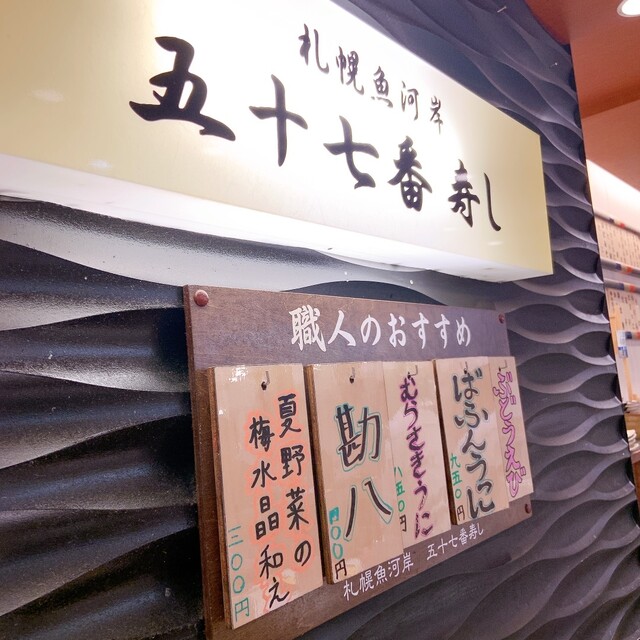 札幌魚河岸
五十七番寿し
職人のおすすめ
ぶどうえび
ばふんうに
九五〇円
むらさきうに
八五〇円
勘八
夏野菜の
梅水晶和え
三〇〇円
札幌魚河岸 五十七番寿し